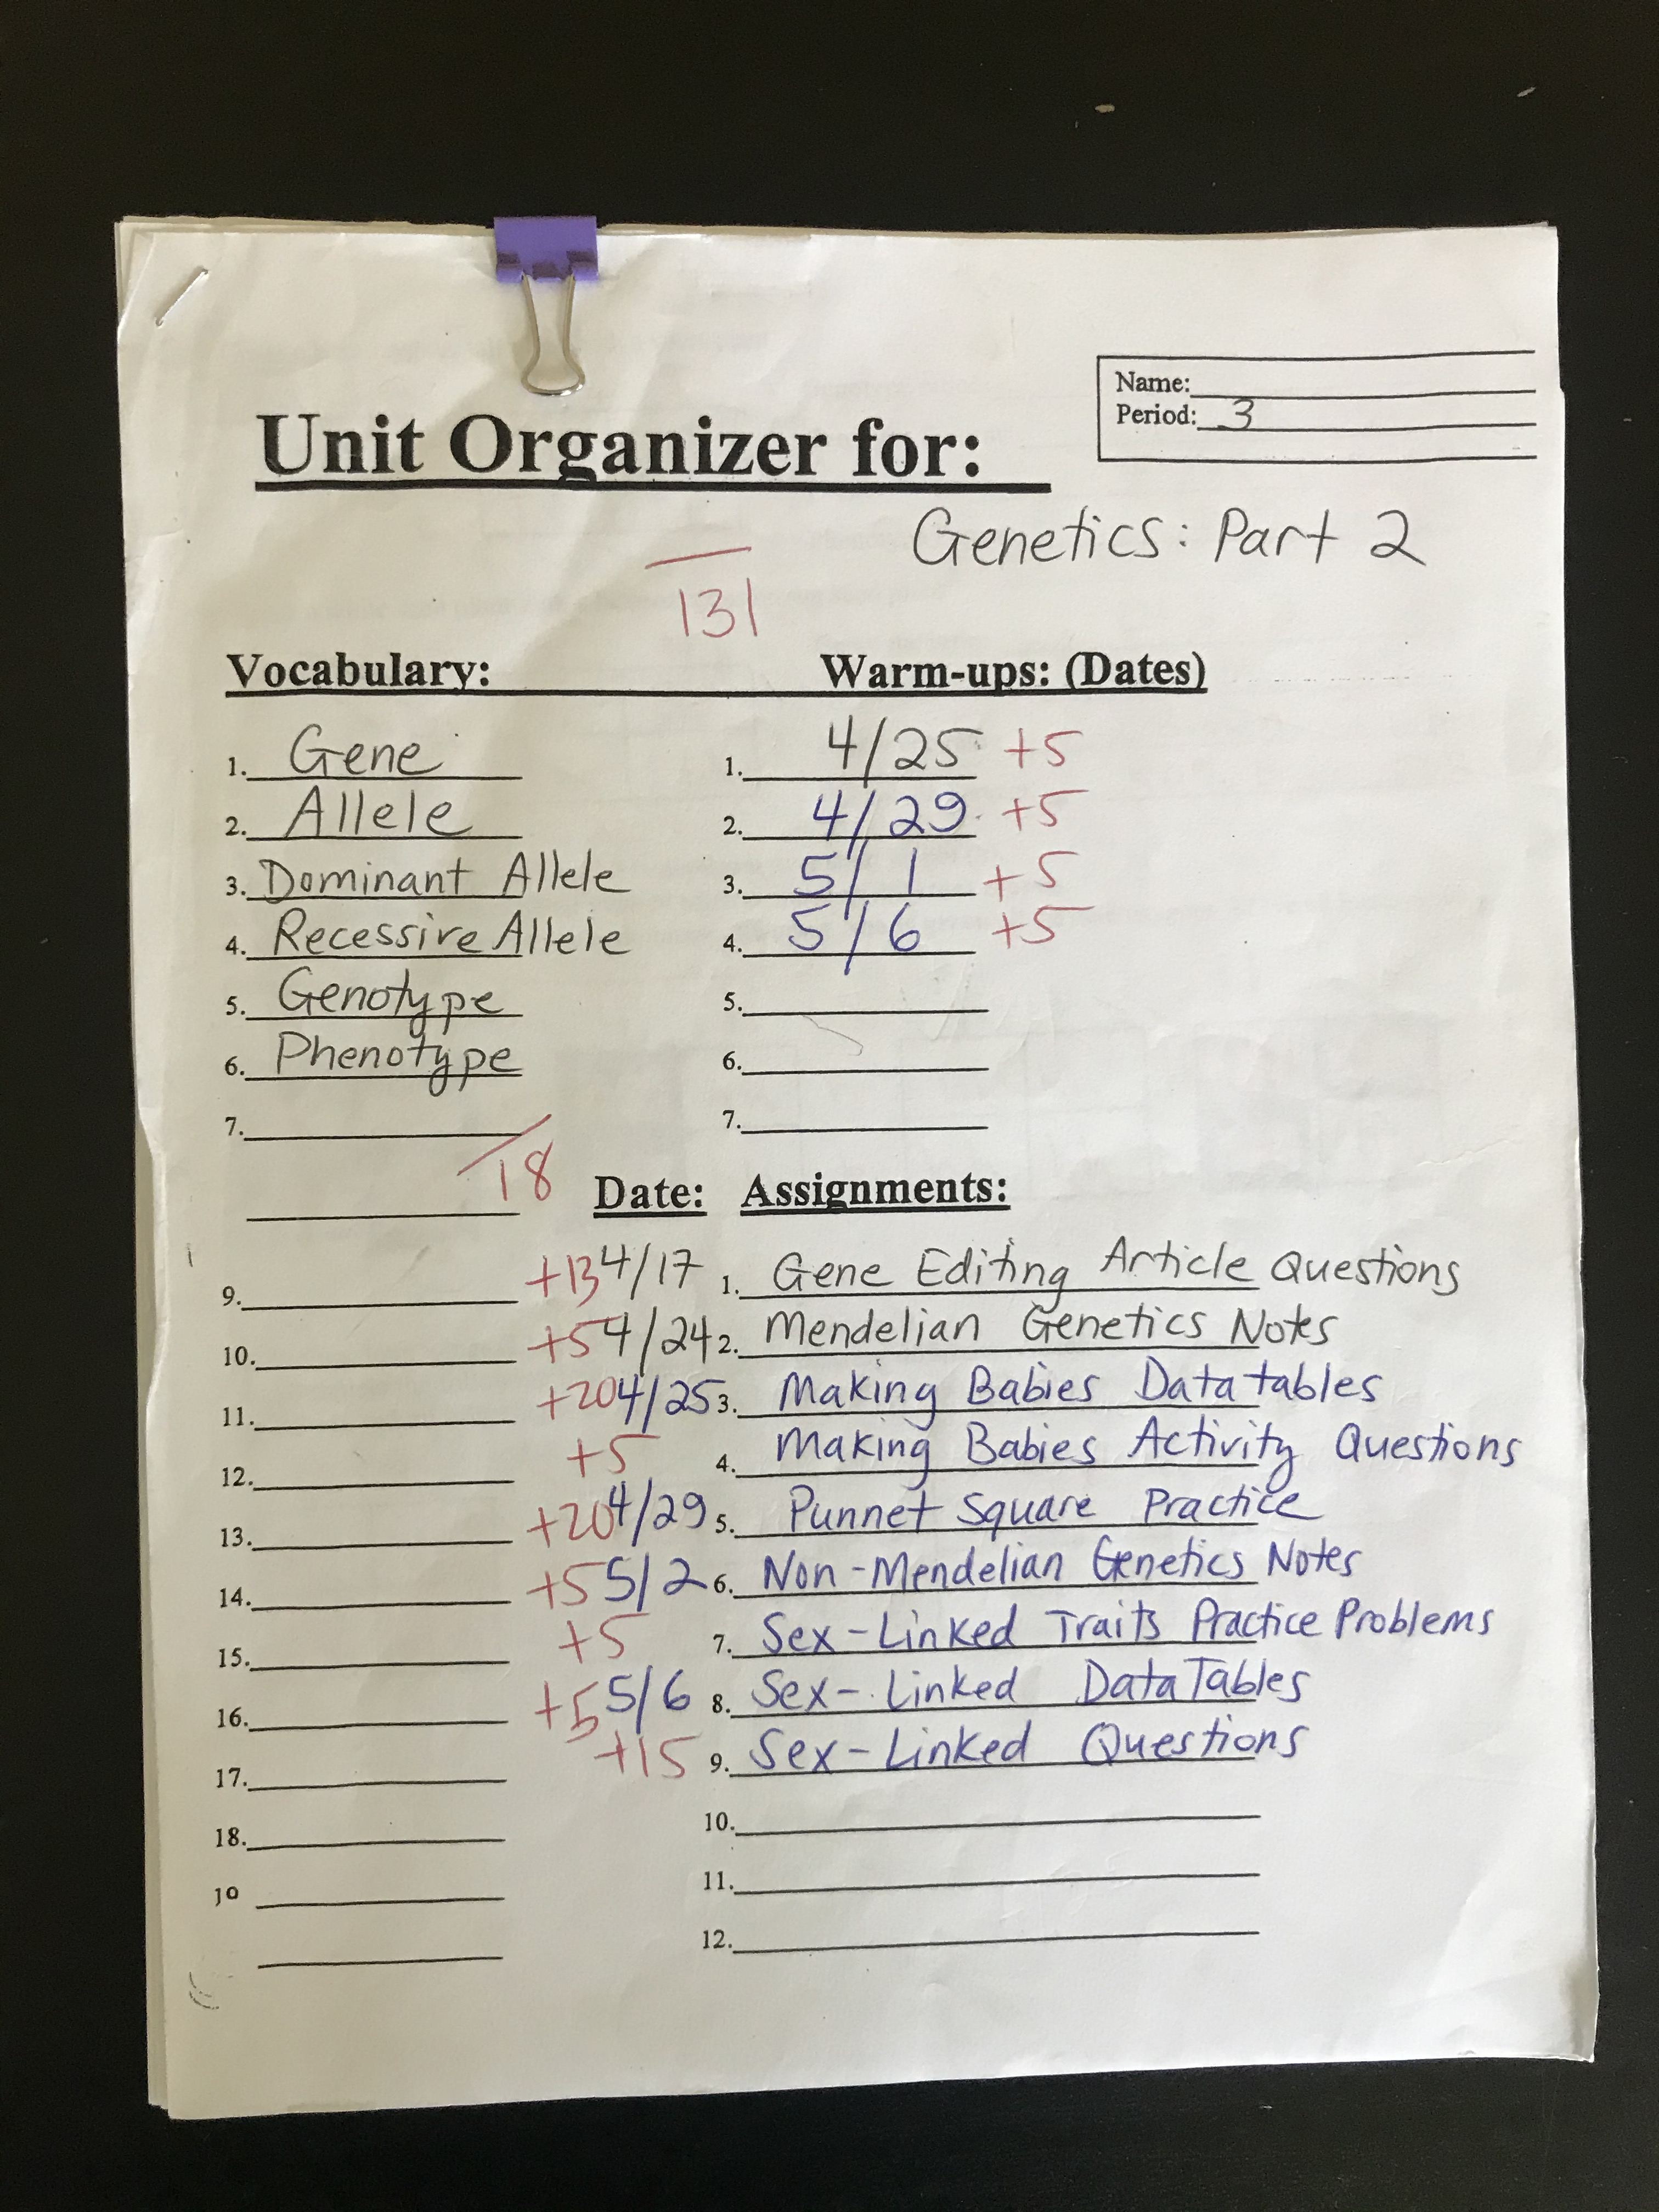 Name:
Period: 3
Unit Organizer for:
Genetics: Part 2
131
Vocabulary: Warm-ups: (Dates)
1. Gene 1. 4/25 +5
2. Allele 2. 4/29 +5
3. Dominant Allele 3. 5/1 +5
4. Recessive Allele 4. 5/6 +5
5. Genotype 5.
6. Phenotype 6.
7. 7.
18
Date: Assignments:
9. +13 4/17 1. Gene Editing Article Questions
10. +5 4/24 2. Mendelian Genetics Notes
11. +20 4/25 3. Making Babies Data tables
12. +5 4. Making Babies Activity Questions
13. +20 4/29 5. Punnet Square Practice
14. +5 5/2 6. Non-Mendelian Genetics Notes
15. +5 7. Sex-Linked Traits Practice Problems
16. +5 5/6 8. Sex-Linked Data Tables
17. +15 9. Sex-Linked Questions
18. 10.
11.
12.